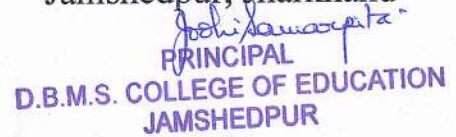 Jamshedpur, Jharkhand
Joshi Samarpita
PRINCIPAL
D.B.M.S. COLLEGE OF EDUCATION
JAMSHEDPUR